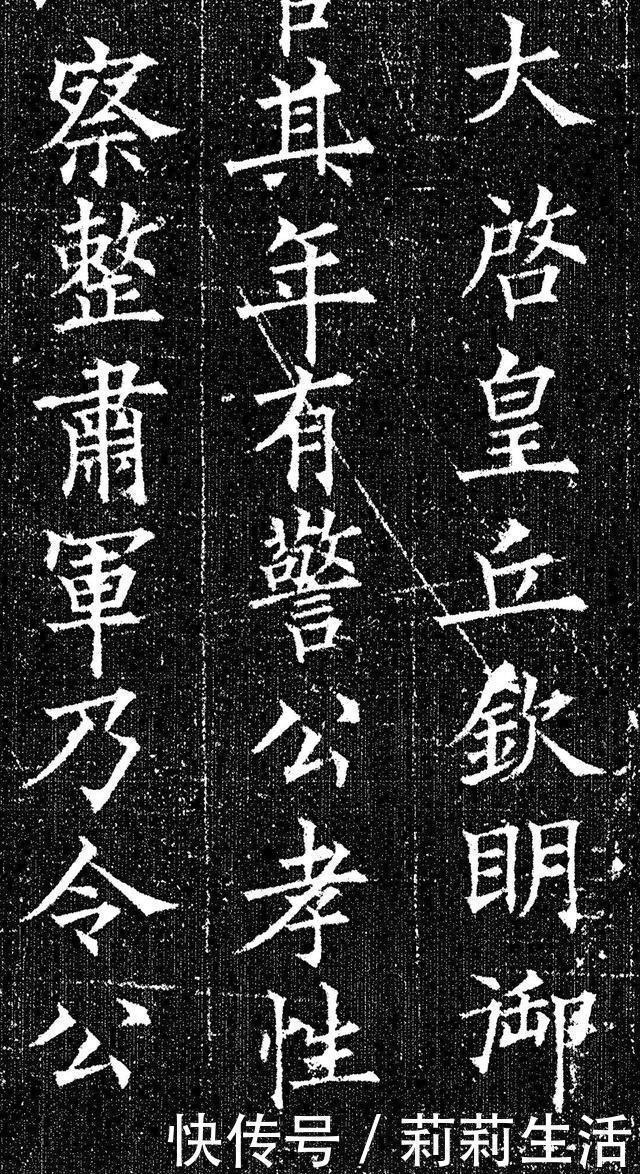 大啓皇丘欽明御
其年有警公孝性
察整肅軍乃令公
快传号／莉莉生活